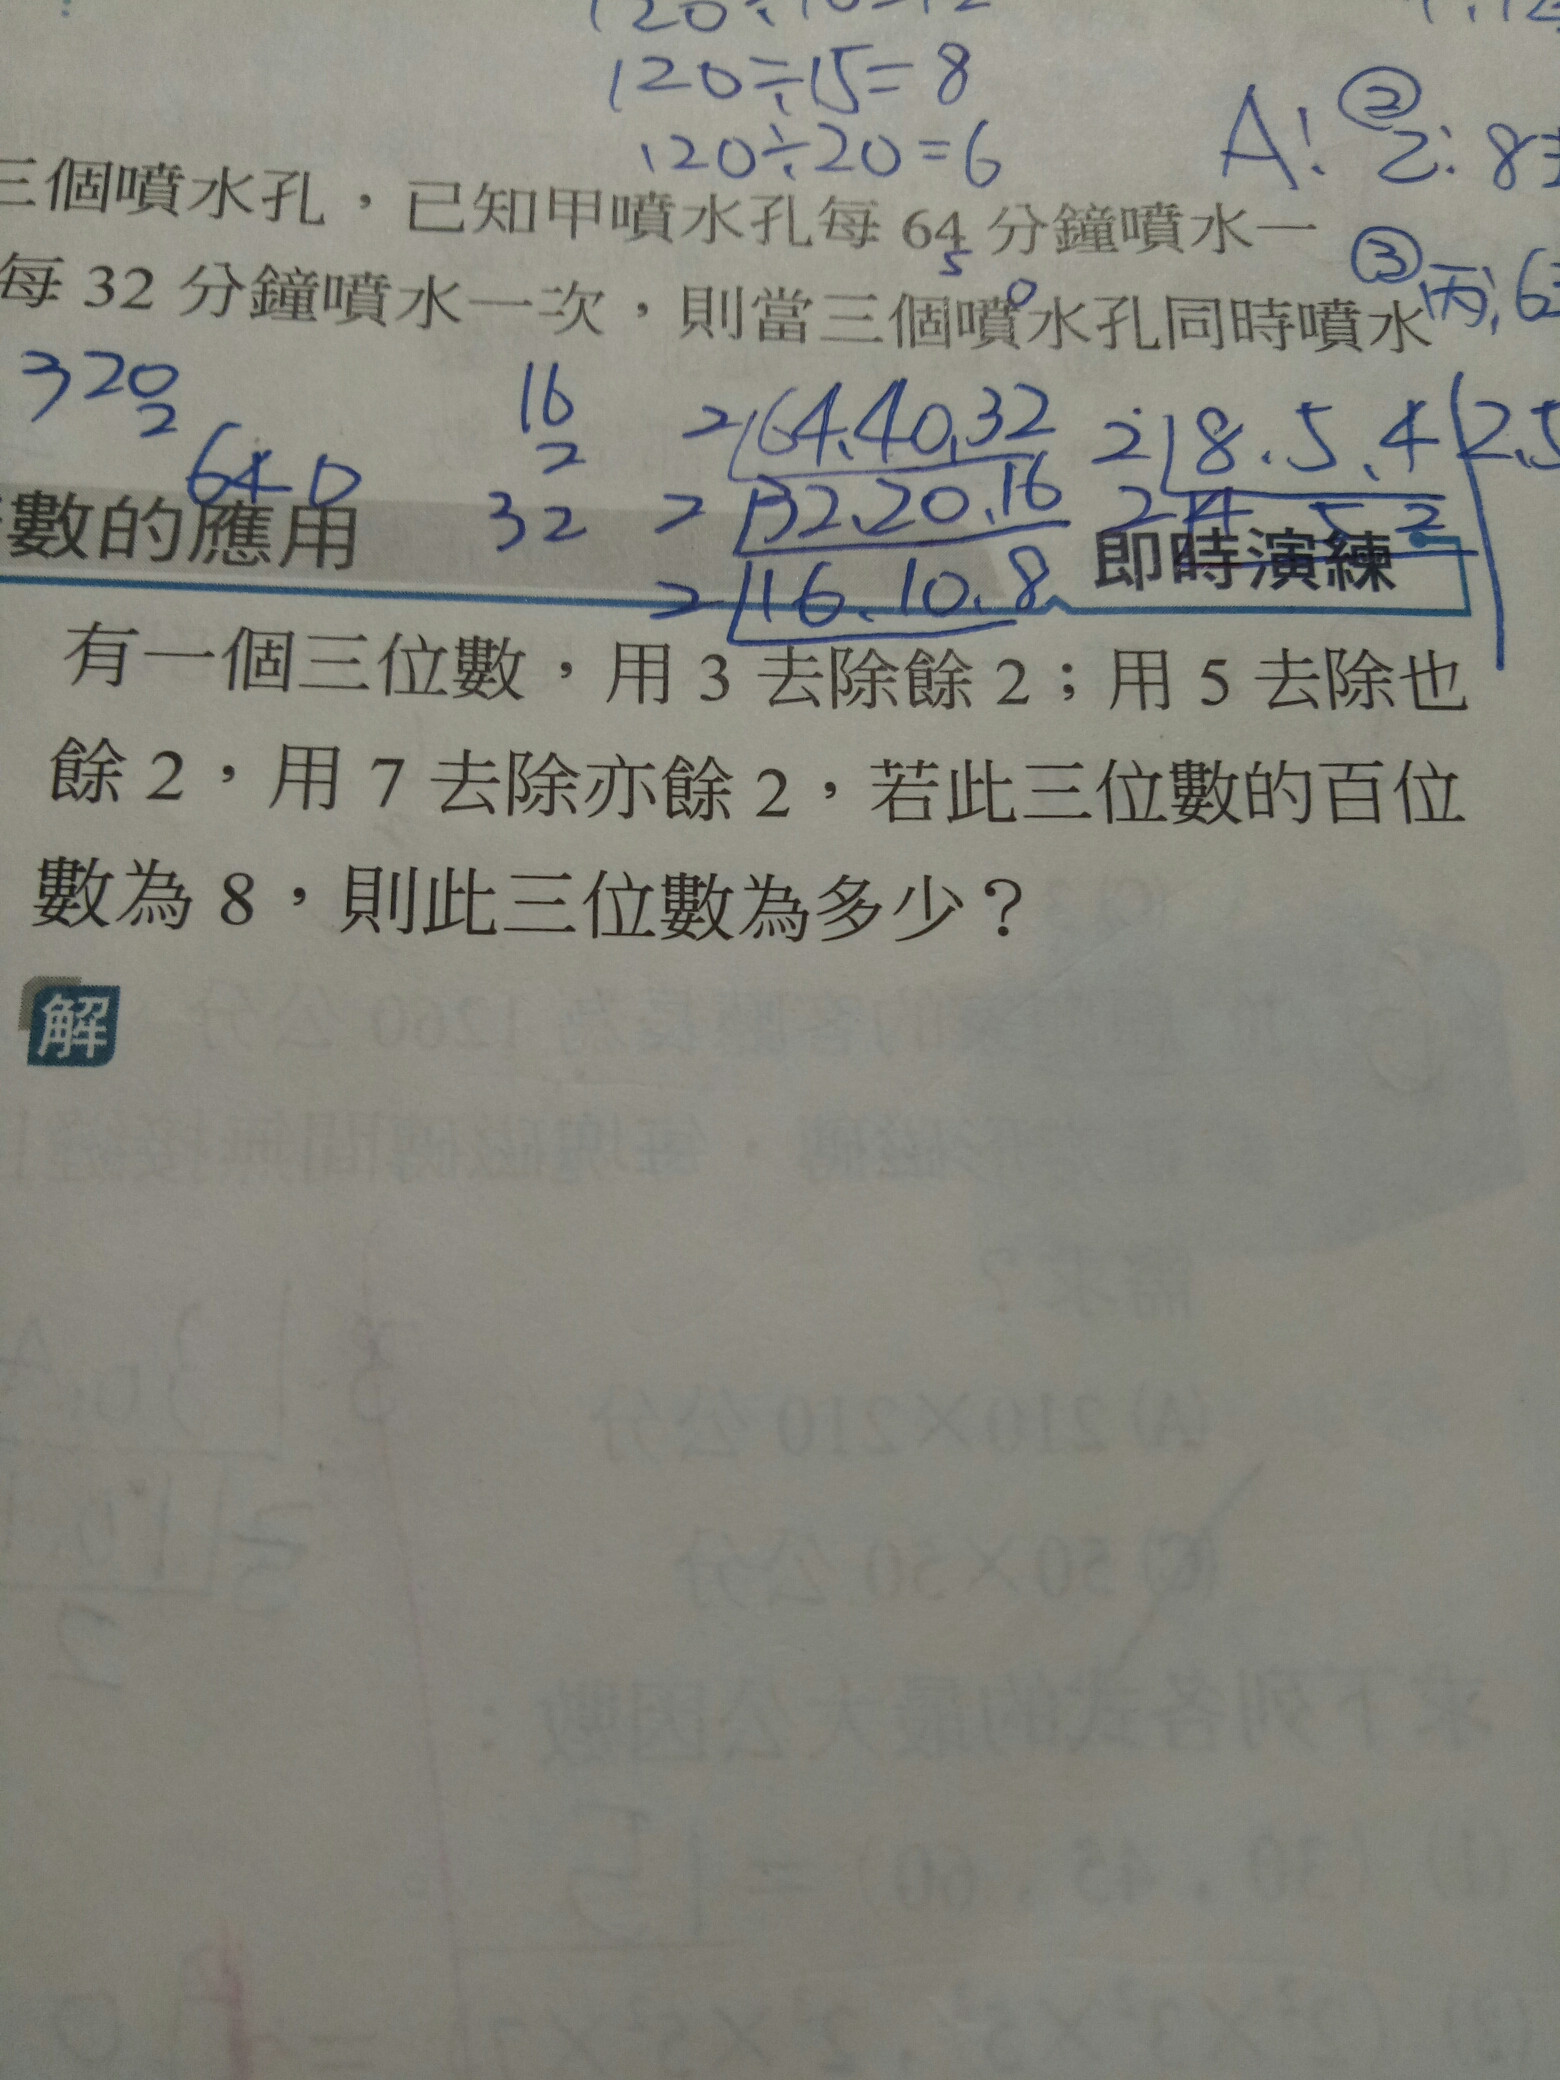 120÷15=8
120÷20=6
A: ② 乙: 8
三個噴水孔，已知甲噴水孔每 64 分鐘噴水一
③ 丙: 6
每 32 分鐘噴水一次，則當三個噴水孔同時噴水
320
2
640
16
2
32
2 64.40.32
2 32.20.16
2 16.10.8
2 8.5.4
2 4 5 2
2.5
數的應用
即時演練
有一個三位數，用 3 去除餘 2；用 5 去除也
餘 2，用 7 去除亦餘 2，若此三位數的百位
數為 8，則此三位數為多少？
解